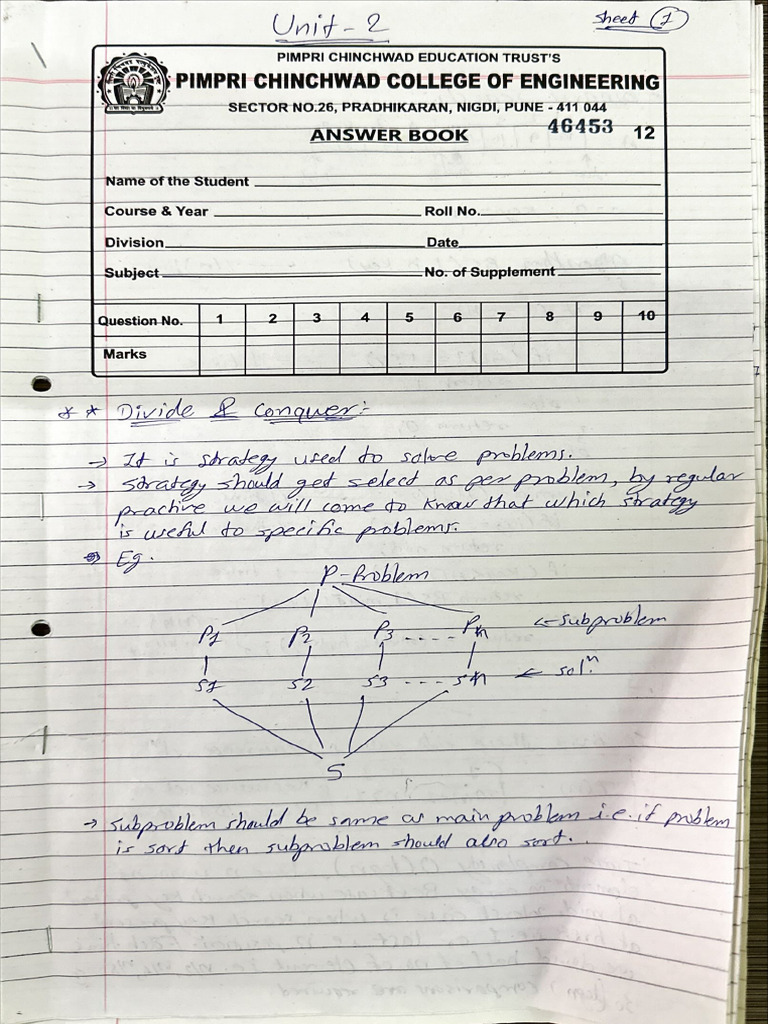 Unit - 2
Sheet 1
PIMPRI CHINCHWAD EDUCATION TRUST'S
PIMPRI CHINCHWAD COLLEGE OF ENGINEERING
SECTOR NO.26, PRADHIKARAN, NIGDI, PUNE - 411 044
ANSWER BOOK 46453 12
Name of the Student
Course & Year Roll No.
Division Date
Subject No. of Supplement
Question No. 1 2 3 4 5 6 7 8 9 10
Marks
** Divide & Conquer:-
→ It is strategy used to solve problems.
→ Strategy should get select as per problem, by regular
practive we will come to know that which strategy
is useful to specific problems.
→ Eg.
P-Problem
P1 P2 P3 ---- Pn ← subproblem
S1 S2 S3 ---- Sn ← solⁿ.
S
→ Subproblem should be same as main problem i.e. if problem
is sort then subproblem should also sort.